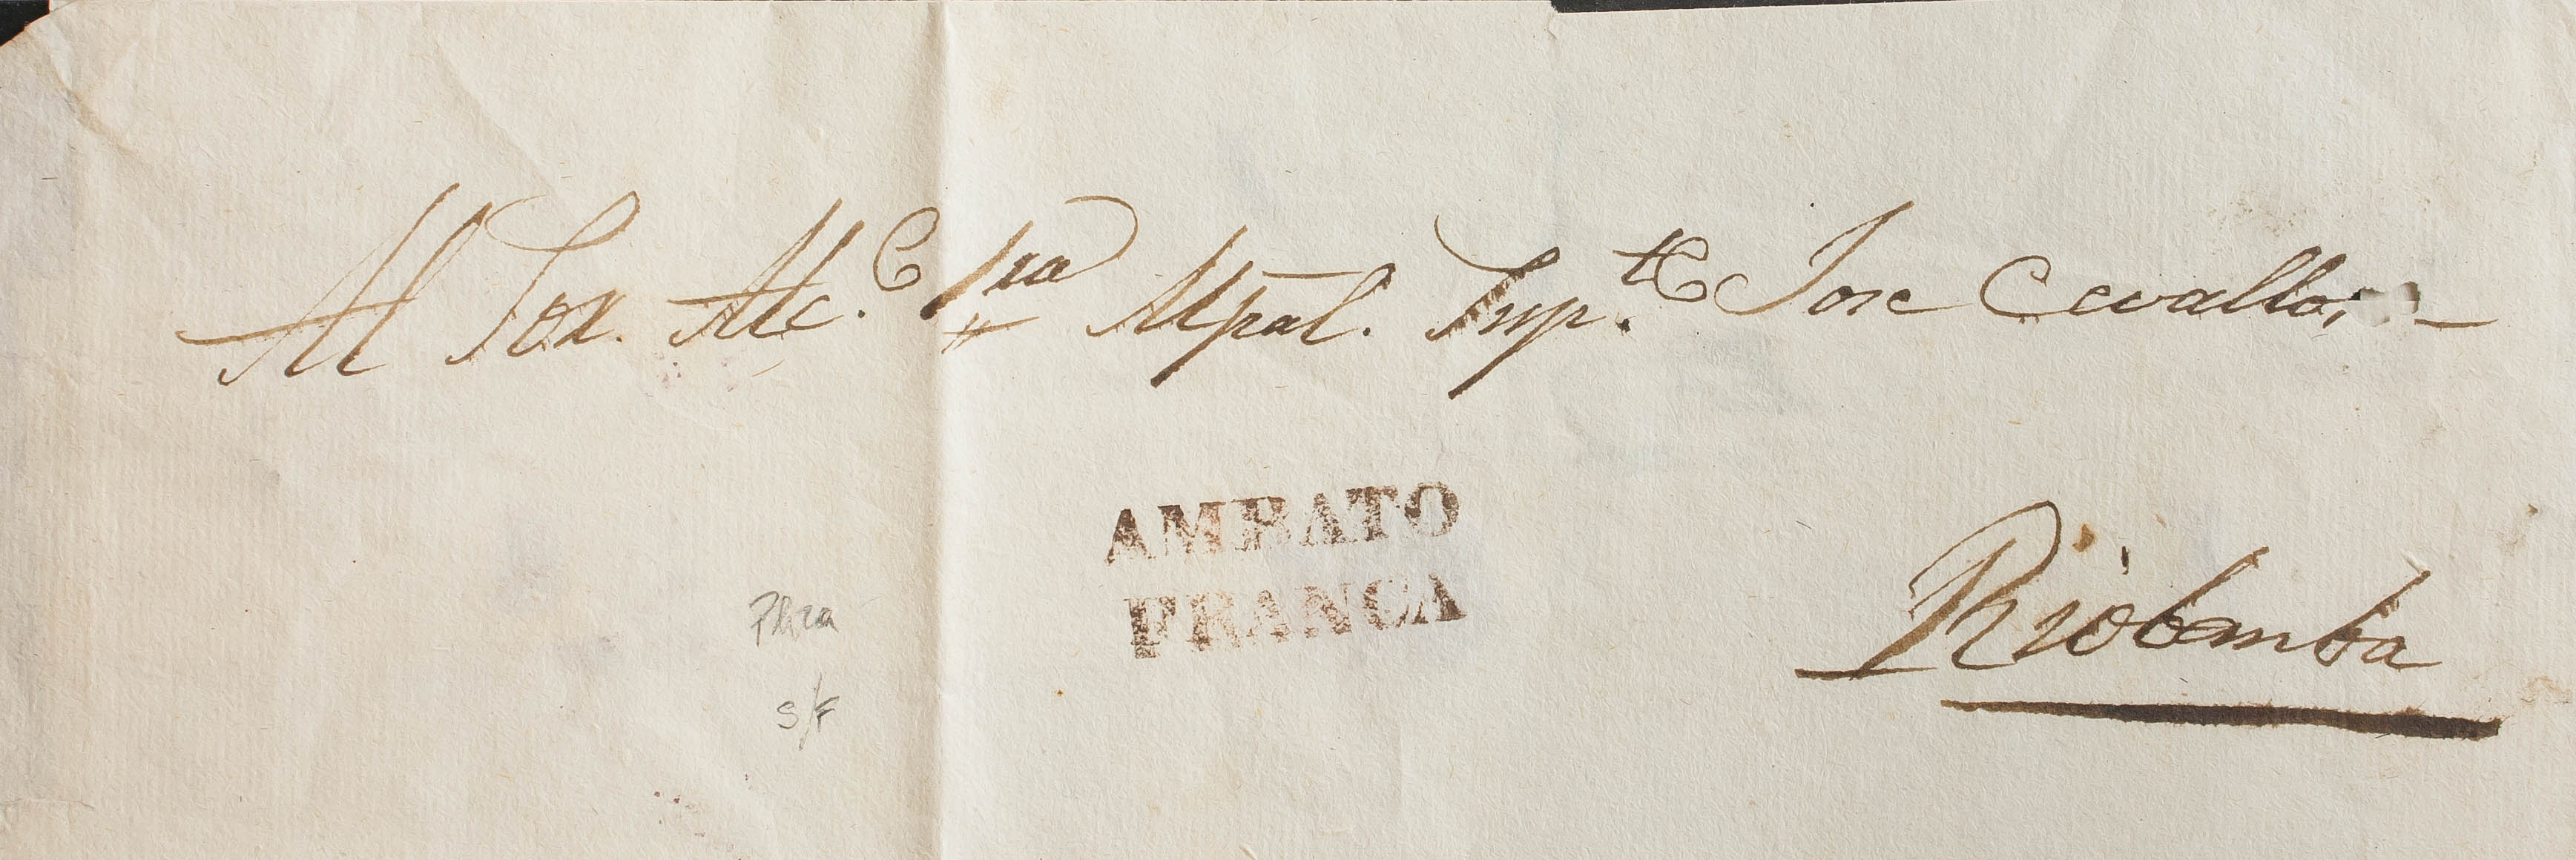 Al Sor. Alc.e 1ro Mpal. Sup.te Jose Cevallos
AMBATO
FRANCA
Riobamba
S/F